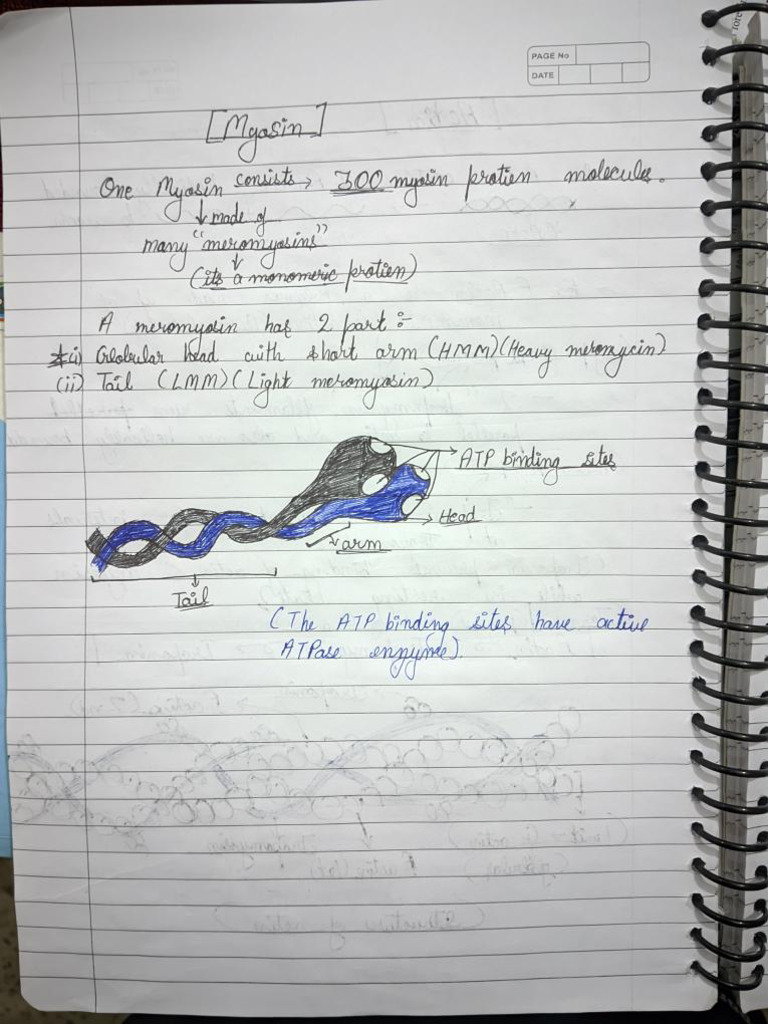 PAGE No
DATE
[Myosin]
One Myosin consists → 300 myosin protien molecules.
↓ made of
many "meromyosins"
↓
(its a monomeric protien)
A meromyosin has 2 part :-
*(i) Globular head with short arm (HMM) (Heavy meromycin)
(ii) Tail (LMM) (Light meromyosin)
→ ATP binding sites
→ Head
↓ arm
↓
Tail
(The ATP binding sites have active
ATPase enzyme)